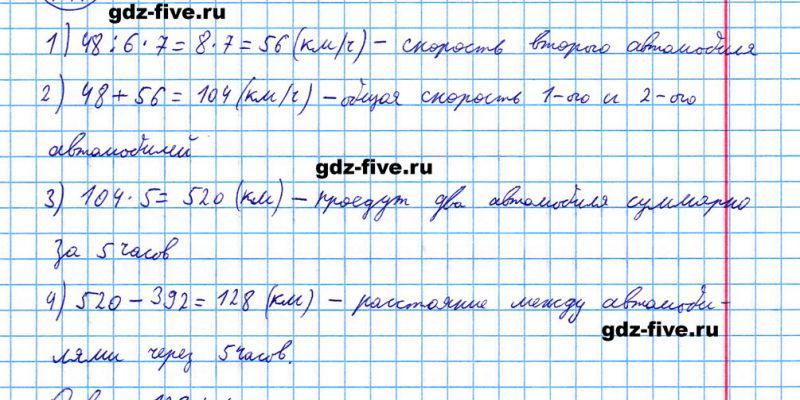 gdz-five.ru
1) 48:6·7=8·7=56 (км/ч) – скорость второго автомобиля
2) 48+56=104 (км/ч) – общая скорость 1-ого и 2-ого
автомобилей
gdz-five.ru
3) 104·5=520 (км) – проедут два автомобиля суммарно
за 5 часов
4) 520–392=128 (км) – расстояние между автомоби-
gdz-five.ru
лями через 5 часов.